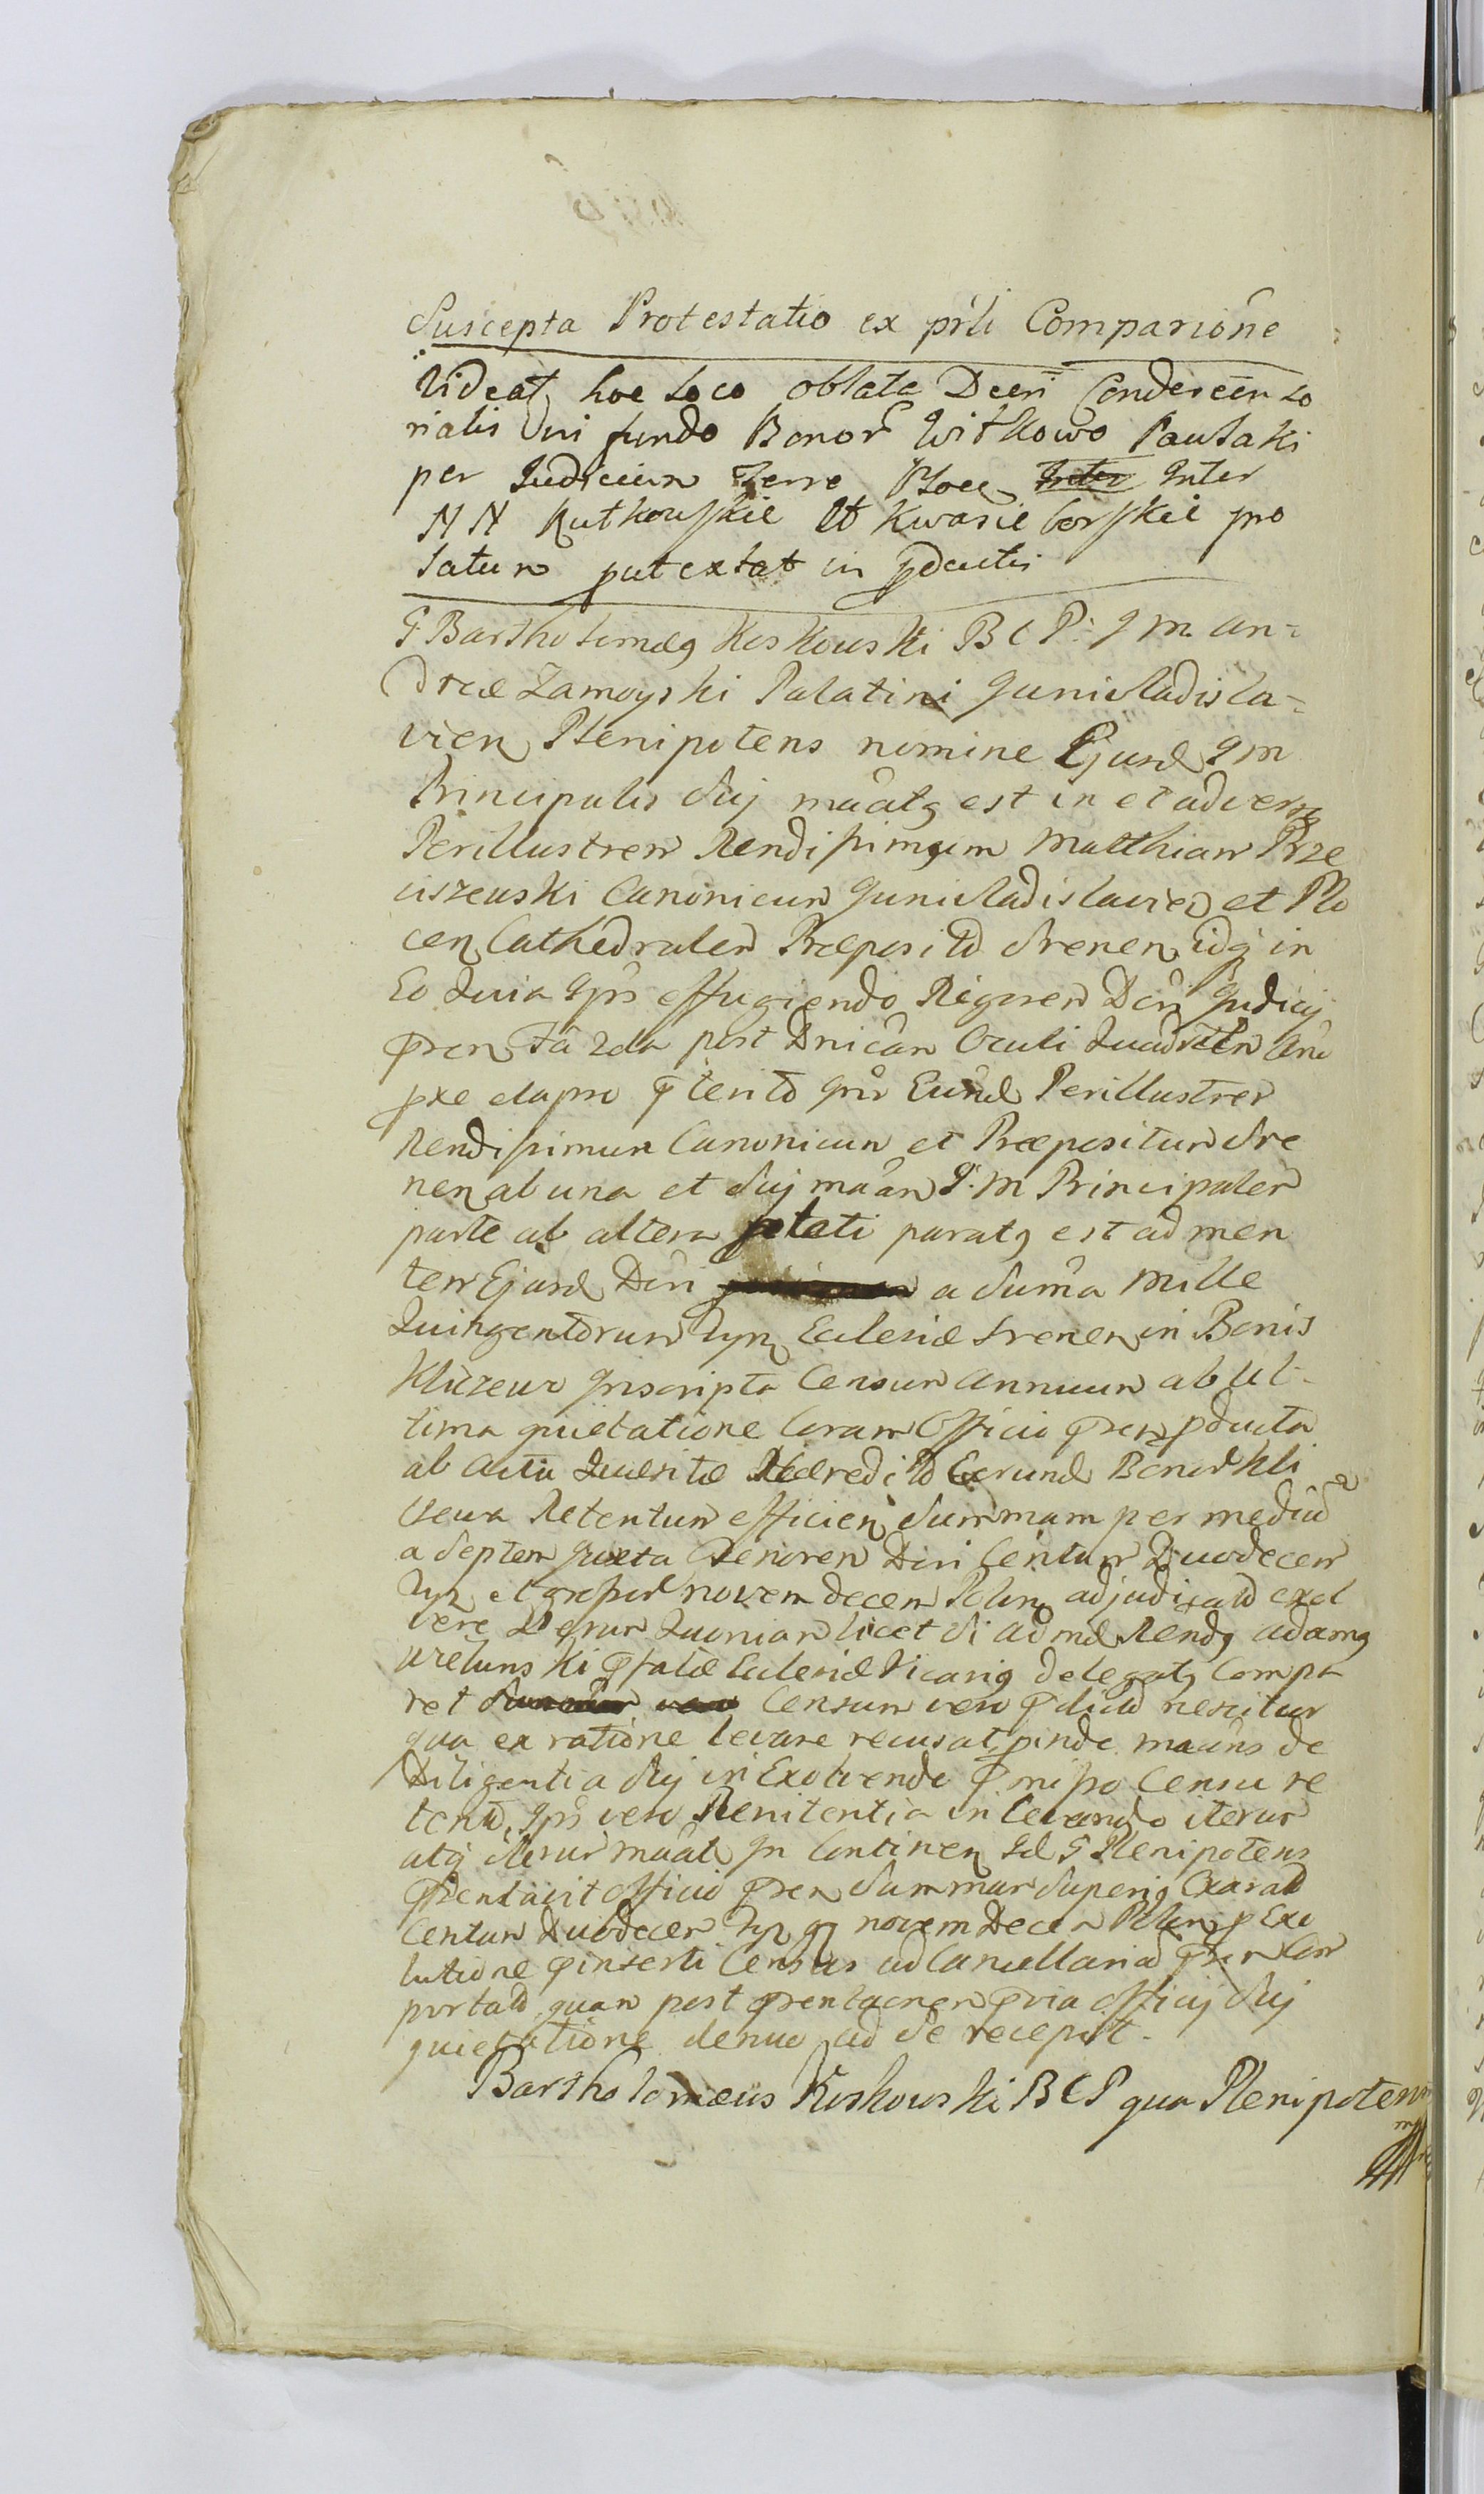 Suscepta Protestatio ex prsli Comparione
Videat hoc loco oblata Decri Condescenso
rialis in fundo Bonor Witkowo Pawlaki
per Judicium Terre Ploc Inter Inter
N N Rutkowskie et Kwasieborskie pro
latum put extat in pductis
G Bartholomæg Koskowski B C P: I M An=
dreæ Zamoyski Palatini Junivladisla=
vien Plenipotens nomine Ejusd I M
Principalis Suj maatg est in et adversg
Perillustrem Rendissimgum Matthiam Prze
ciszewski Canonicum Junivladislavien et Plo
cen Cathedralem Præpositd Srenen idq in
Eo Quia Ipse effugiendo Rigorem Dcri Judicij
pren fa 2da post Dnicam Oculi Quadrlem Ano
pxe elapso Eund Perillustrem
Rendissimum Canonicum et Præpositum Sre
nen ab una et Suj maan I M Principalem
parte ab altera lati paratg est ad men
tem Ejusd Dcri a Suma Mille
Quingentorum Tyn Eclesiæ Srenen in Bonis
Kliczewo Inscripta Censum Annuum ab Ul-
tima quietatione Coram Officio pren pducta
ab Actu Quæsitæ Hæreditd Eorund Bonor Kli
czewa Retentum efficien Summam per mediu
a Septem Juxta Tenorem Dcri Centum Duodecem
Tyn et gross novem decem Polon adjudicatd exol
vere Verum Quoniam licet Si Admd Rendg Adamg
Wieluński pfatæ Eclesiæ Vicarig Delegatg Compa
ret Censum vero pdictd nescitur
qua ex ratione levare recusat pinde maans de
Diligentia Suj in Exolvendo pmisso Censu re
tento Ipse vero Renitentia in Levando iterum
atq iterum maat In Continen Id G Plenipotens
pentavit Officio pren Summam Superig Exaratd
Centum Duodecem Tyn gr novem Decem Polon p Exo
lutione pinserti Census ad Cancellariad pren Com
portatd quam post prentaonem pvia Officij Suj
quietatione denuo ad Se recepit.
Bartholomæus Koskowski B C P qua Plenipotens